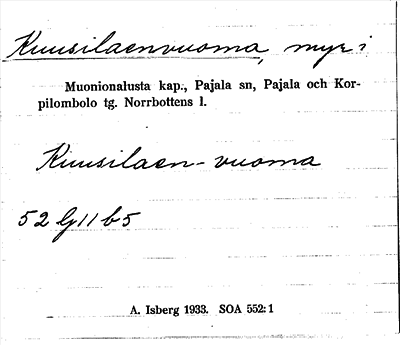 Kuusilaenvuoma, myr i
Muonionalusta kap., Pajala sn, Pajala och Kor-
pilombolo tg. Norrbottens l.
Kuusilaen-vuoma
52 G 11 b 5
A. Isberg 1933. SOA 552:1